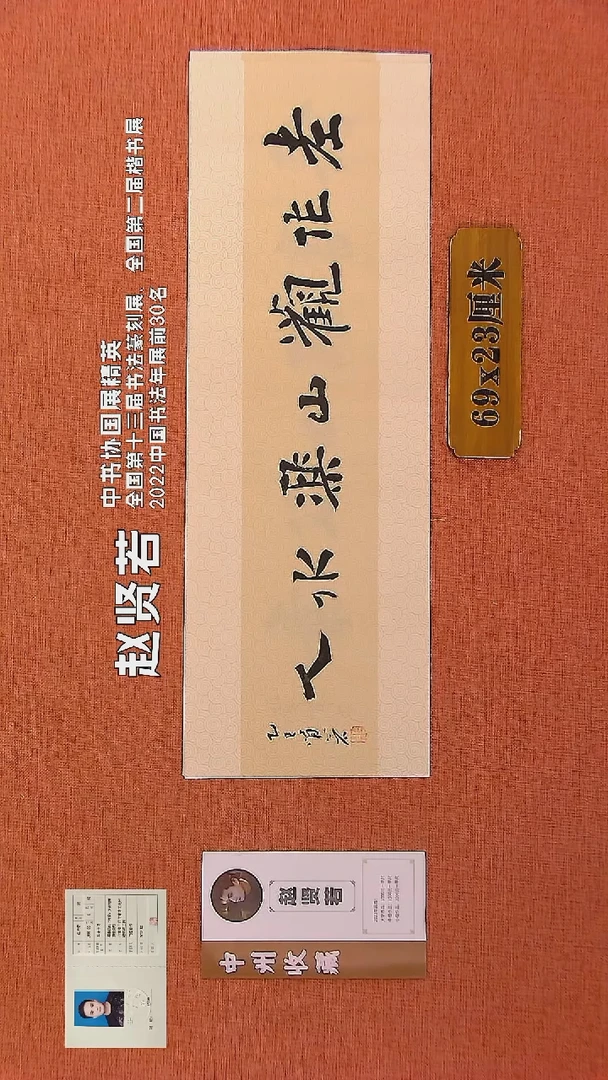 赵贤若
中书协国展精英
全国第十三届书法篆刻展、 全国第二届楷书展
2022中国书法年展前30名
老作觀山樂水人
乙巳賢若
69x23厘米
中州收藏
赵贤若